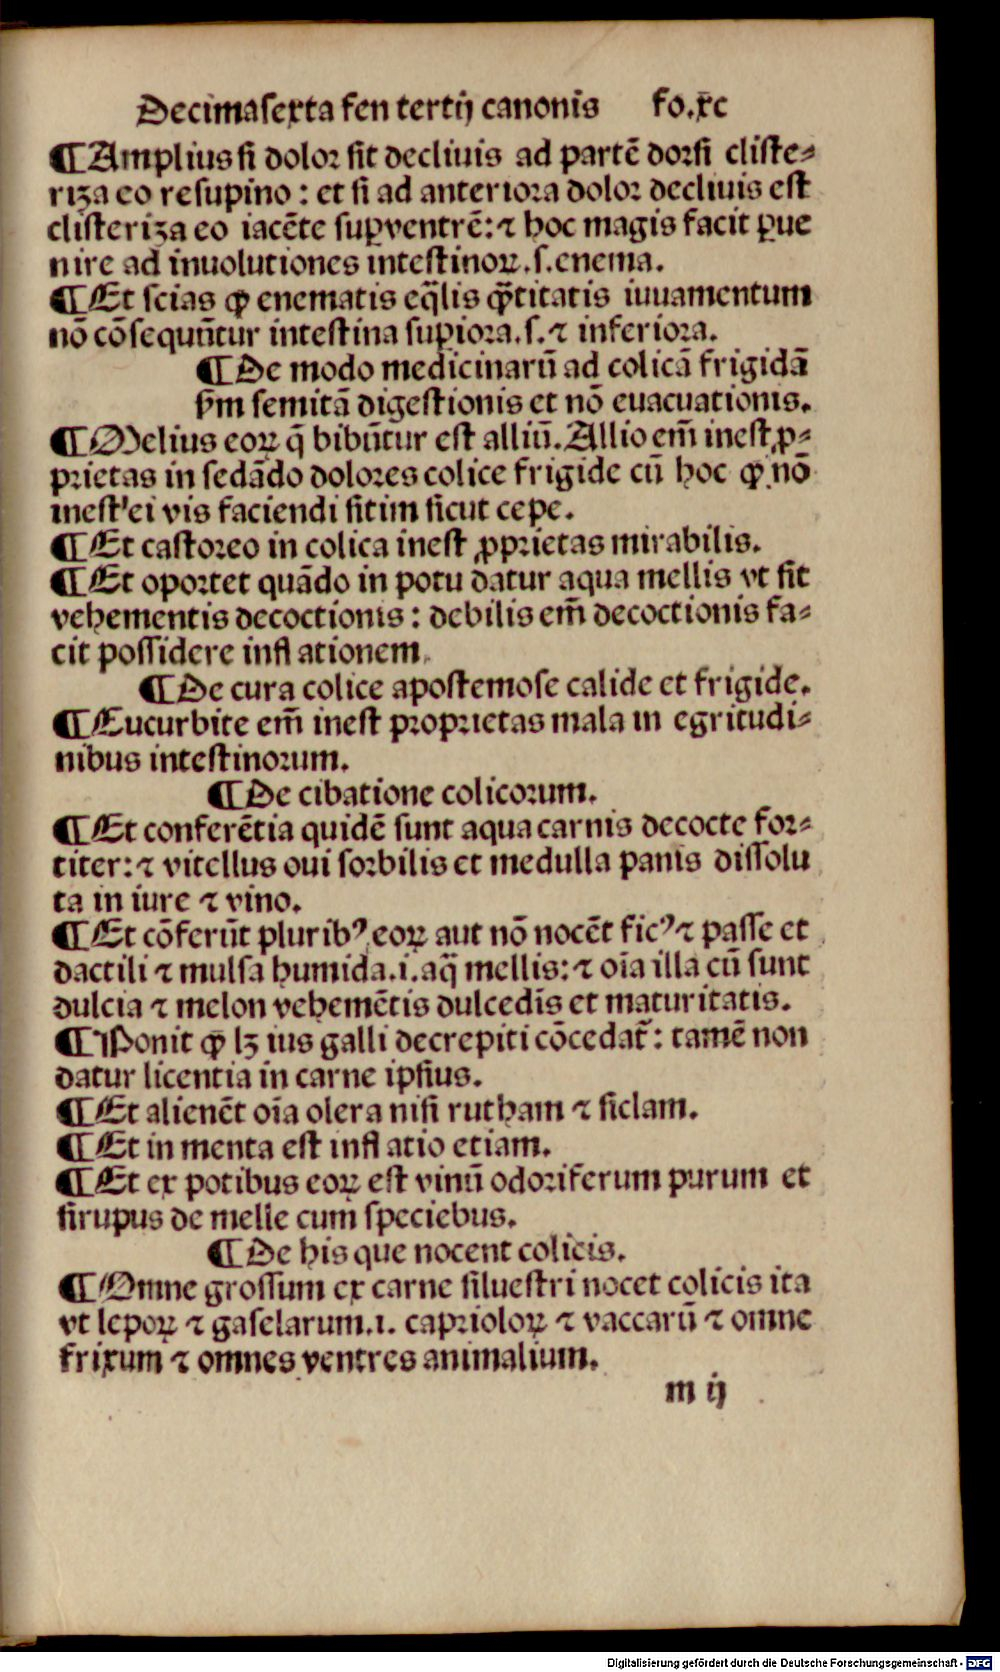 Decimasexta fen tertij canonis fo.xc
¶Amplius si dolor sit decliuis ad partē dorsi cliste⸗
riza eo resupino : et si ad anteriora dolor decliuis est
clisteriza eo iacēte suꝑ ventrē: ⁊ hoc magis facit ꝑue
nire ad inuolutiones intestinoꝝ.s.enema.
¶Et scias ꝙ enematis eq̄lis q̄ntitatis iuuamentum
nō cōsequūtur intestina suꝑiora.s.⁊ inferiora.
¶De modo medicinarū ad colicā frigidā
ẜm semitā digestionis et nō euacuationis.
¶Melius eoꝝ q̄ bibūtur est alliū. Allio em̄ inest ꝓ⸗
prietas in sedādo dolores colice frigide cū hoc ꝙ nō
inest ei vis faciendi sitim sicut cepe.
¶Et castoreo in colica inest ꝓprietas mirabilis.
¶Et oportet quādo in potu datur aqua mellis vt sit
vehementis decoctionis : debilis em̄ decoctionis fa⸗
cit possidere inflationem.
¶De cura colice apostemose calide et frigide.
¶Cucurbite em̄ inest proprietas mala in egritudi⸗
nibus intestinorum.
¶De cibatione colicorum.
¶Et conferētia quidē sunt aqua carnis decocte for⸗
titer: ⁊ vitellus oui sorbilis et medulla panis dissolu
ta in iure ⁊ vino.
¶Et cōferūt pluribꝰ eoꝝ aut nō nocēt ficꝰ ⁊ passe et
dactili ⁊ mulsa humida.i.aq̄ mellis: ⁊ oīa illa cū sunt
dulcia ⁊ melon vehemētis dulcedīs et maturitatis.
¶Ponit ꝙ lꝫ ius galli decrepiti cōcedat᷑ : tamē non
datur licentia in carne ipsius.
¶Et alienēt oīa olera nisi rutham ⁊ siclam.
¶Et in menta est inflatio etiam.
¶Et ex potibus eoꝝ est vinū odoriferum purum et
sirupus de melle cum speciebus.
¶De his que nocent colicis.
¶Omne grossum ex carne siluestri nocet colicis ita
vt lepoꝝ ⁊ gaselarum.i. caprioloꝝ ⁊ vaccarū ⁊ omne
frixum ⁊ omnes ventres animalium.
m ij
Digitalisierung gefördert durch die Deutsche Forschungsgemeinschaft - DFG